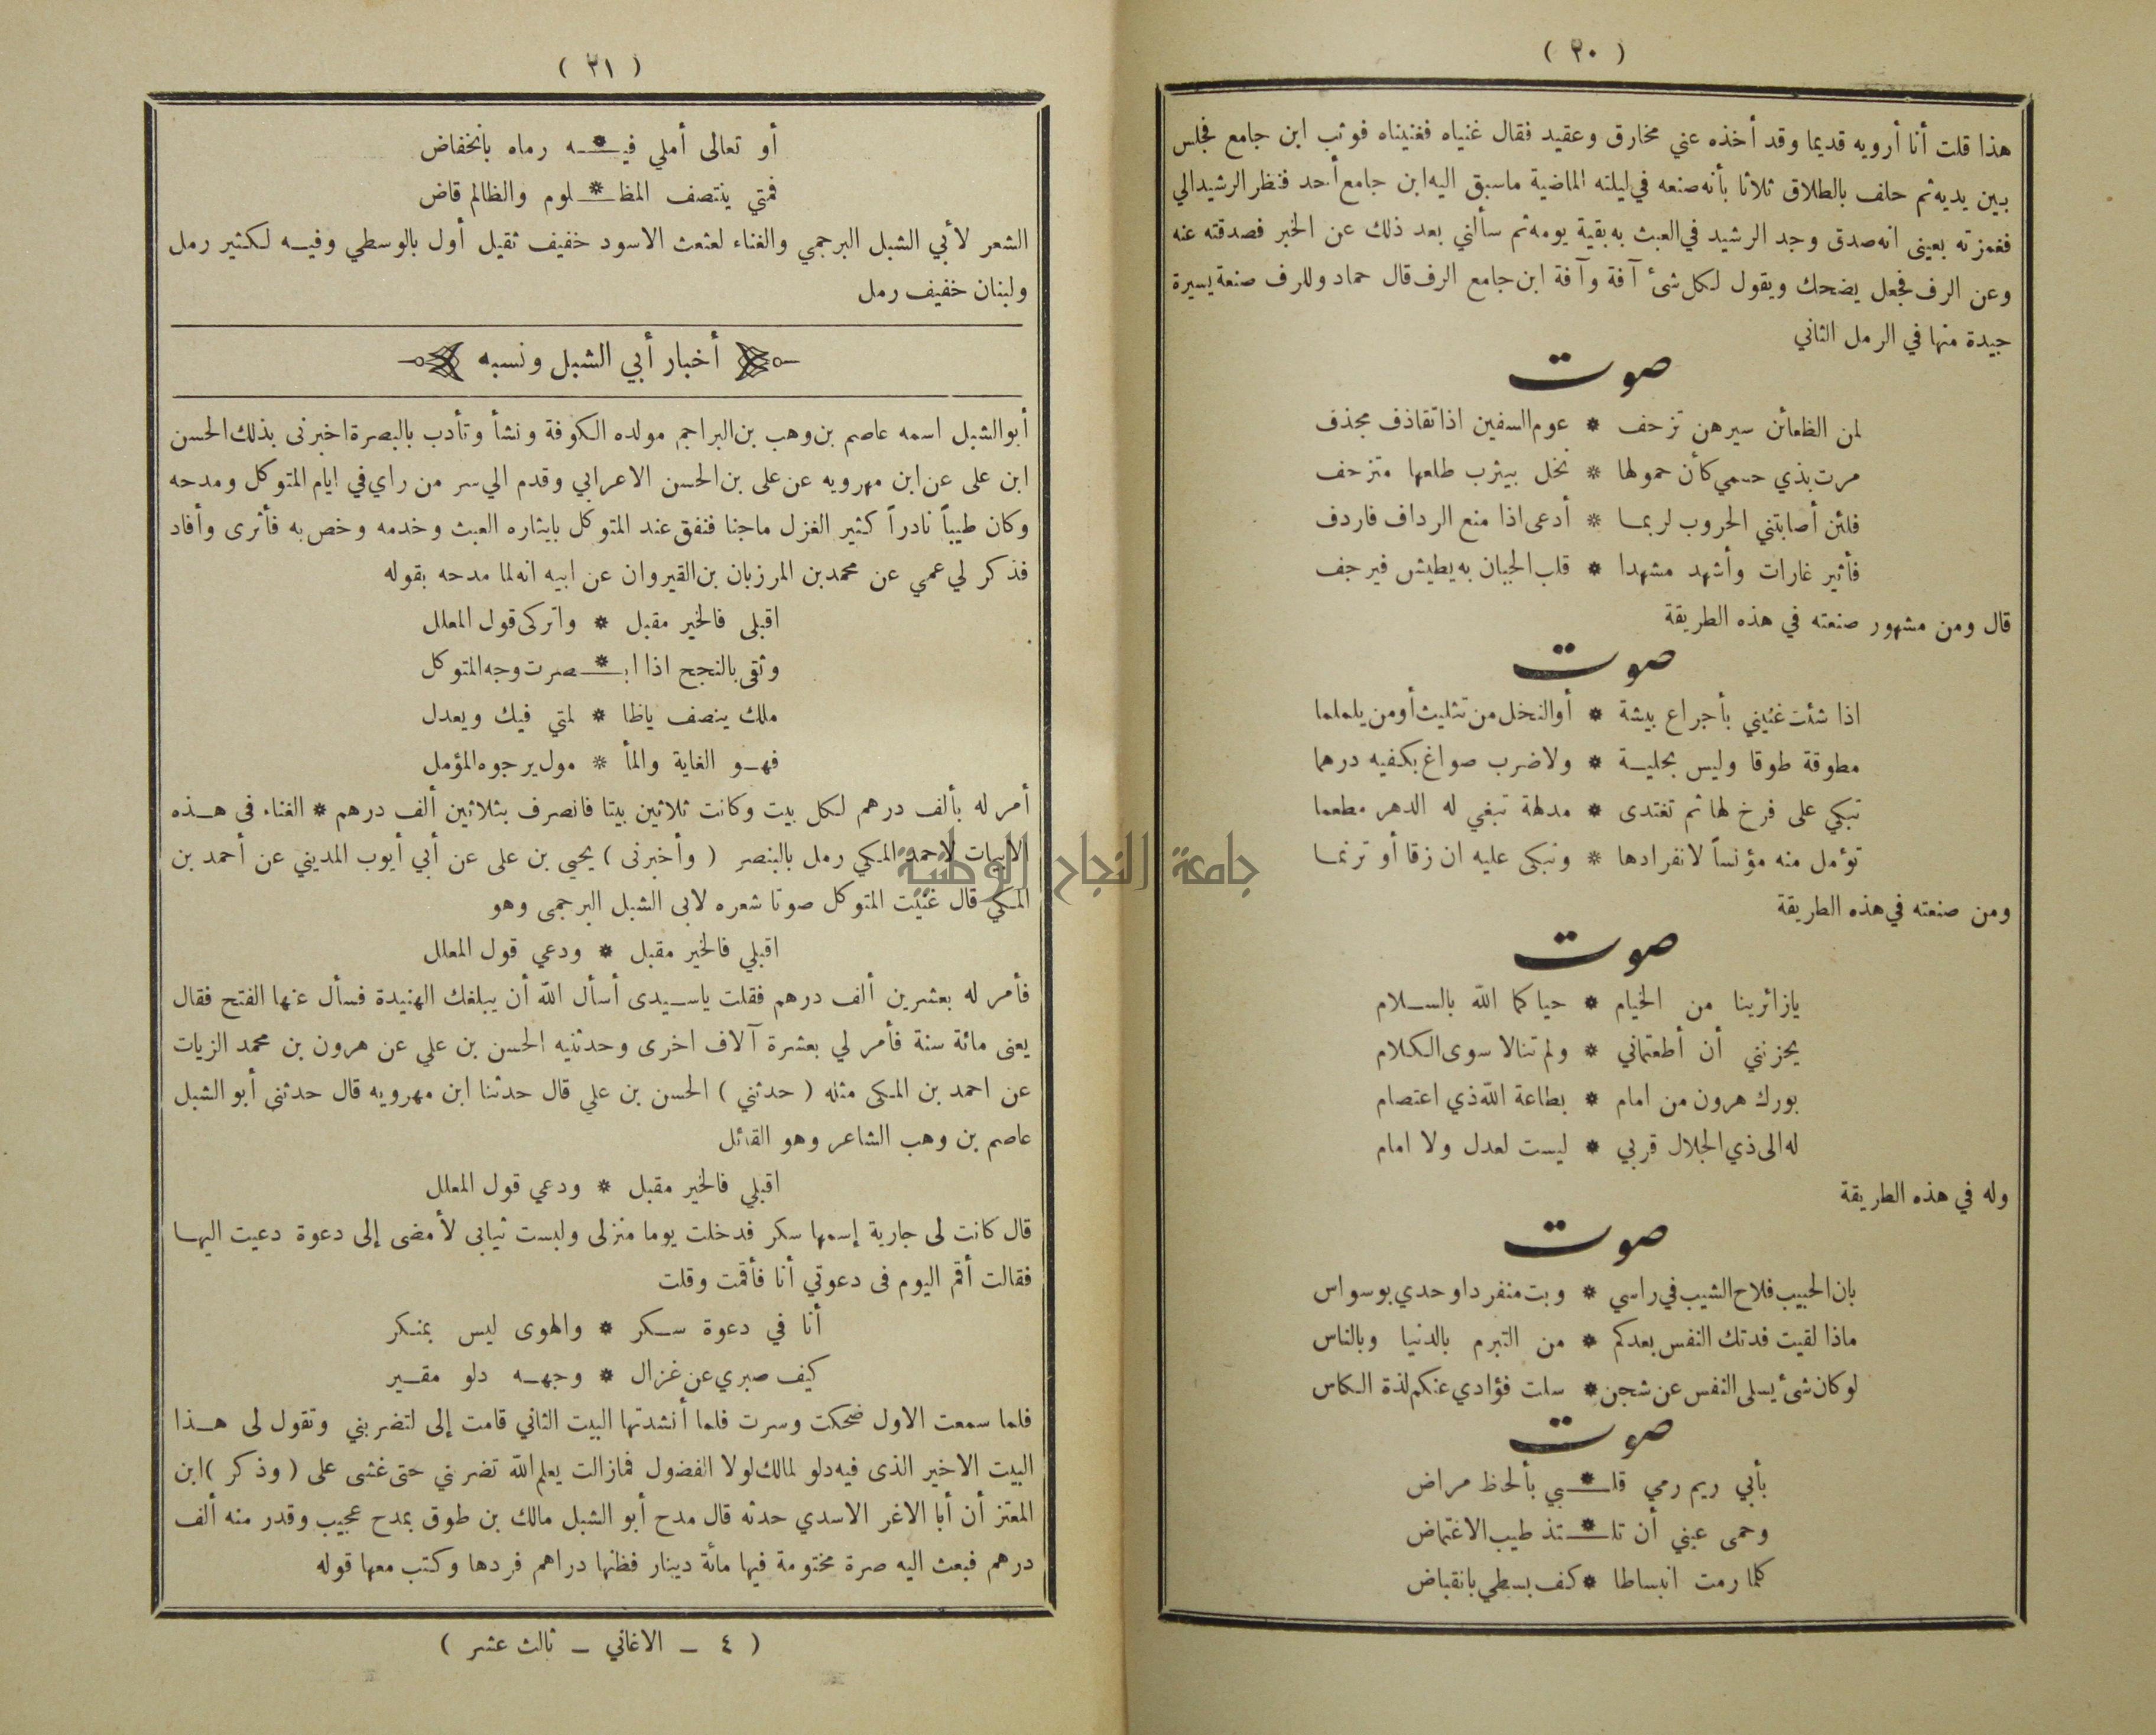 ( ٢٠ )
هذا قلت أنا أرويه قديما وقد أخذه عني مخارق وعقيد فقال غنياه فغنيناه فوثب ابن جامع فجلس
بين يديه ثم حلف بالطلاق ثلاثا بأنه صنعه في ليلته الماضية ما سبق اليه ابن جامع أحد فنظر الرشيد الي
فغمزته بعيني انه صدق وجد الرشيد في العبث به بقية يومه ثم سألني بعد ذلك عن الخبر فصدقته عنه
وعن الرف فجعل يضحك ويقول لكل شئ آفة وآفة ابن جامع الرف قال حماد وللرف صنعة يسيرة
جيدة منها في الرمل الثاني
صوت
لمن الظعائن سيرهن تزحف * عوم السفين اذا تقاذف مجذف
مرت بذي حسمي كأن حمولها * نخل بيثرب طلعها متزحف
فلئن أصابتني الحروب لربما * أدعى اذا منع الرداف فاردف
فأثير غارات وأشهد مشهدا * قلب الجبان به يطيش فيرجف
قال ومن مشهور صنعته في هذه الطريقة
صوت
اذا شئت غنيني بأجراع بيشة * أو النخل من تثليث أو من يلملما
مطوقة طوقا وليس بحلية * ولا ضرب صواغ بكفيه درهما
تبكي على فرخ لها ثم تغتدى * مدلهة تبغي له الدهر مطعما
تؤمل منه مؤنساً لانفرادها * وتبكى عليه ان زقا أو ترنما
ومن صنعته في هذه الطريقة
صوت
يا زائرينا من الخيام * حيا كما الله بالسلام
يحزنني أن أطعتماني * ولم تنالا سوى الكلام
بورك هرون من امام * بطاعة الله ذي اعتصام
له الى ذي الجلال قربي * ليست لعدل ولا امام
وله في هذه الطريقة
صوت
بان الحبيب فلاح الشيب في راسي * وبت منفردا وحدي بوسواس
ماذا لقيت فدتك النفس بعدكم * من التبرم بالدنيا وبالناس
لو كان شئ يسلى النفس عن شجن * سلت فؤادي عنكم لذة الكاس
صوت
بأبي ريم رمي قلـ * ـبي بألحاظ مراض
وحمى عيني أن تلـ * ـتذ طيب الاغتماض
كلما رمت انبساطا * كف بسطي بانقباض
( ٢١ )
أو تعالى أملي فيـ * ـه رماه بانخفاض
فمتي ينتصف المظـ * ـلوم والظالم قاض
الشعر لأبي الشبل البرجمي والغناء لعثعث الاسود خفيف ثقيل أول بالوسطي وفيه لكثير رمل
ولبنان خفيف رمل
أخبار أبي الشبل ونسبه
أبو الشبل اسمه عاصم بن وهب بن البراجم مولده الكوفة ونشأ وتأدب بالبصرة اخبرنى بذلك الحسن
ابن على عن ابن مهرويه عن على بن الحسن الاعرابي وقدم الي سر من راي في ايام المتوكل ومدحه
وكان طيباً نادراً كثير الغزل ماجنا فنفق عند المتوكل بايثاره العبث وخدمه وخص به فأثرى وأفاد
فذكر لي عمي عن محمد بن المرزبان بن القيروان عن ابيه انه لما مدحه بقوله
اقبلى فالخير مقبل * واتركى قول المعلل
وثقى بالنجح اذا ابـ * ـصرت وجه المتوكل
ملك ينصف ياظا * لمتي فيك ويعدل
فهو الغاية والمأ * مول يرجوه المؤمل
أمر له بألف درهم لكل بيت وكانت ثلاثين بيتا فانصرف بثلاثين ألف درهم * الغناء فى هذه
الابيات لاحمد المكي رمل بالبنصر ( وأخبرنى ) يحيى بن على عن أبي أيوب المديني عن أحمد بن
المكي قال غنيت المتوكل صوتا شعره لابى الشبل البرجمى وهو
اقبلي فالخير مقبل * ودعي قول المعلل
فأمر له بعشرين ألف درهم فقلت ياسيدى أسأل الله أن يبلغك الهنيدة فسأل عنها الفتح فقال
يعنى مائة سنة فأمر لي بعشرة آلاف اخرى وحدثنيه الحسن بن علي عن هرون بن محمد الزيات
عن احمد بن المكى مثله ( حدثني ) الحسن بن علي قال حدثنا ابن مهرويه قال حدثني أبو الشبل
عاصم بن وهب الشاعر وهو القائل
اقبلي فالخير مقبل * ودعي قول المعلل
قال كانت لى جارية إسمها سكر فدخلت يوما منزلى ولبست ثيابى لأمضى إلى دعوة دعيت اليها
فقالت أقم اليوم فى دعوتي أنا فأقمت وقلت
أنا في دعوة سكر * والهوى ليس بمنكر
كيف صبري عن غزال * وجهه دلو مقير
فلما سمعت الاول ضحكت وسرت فلما أنشدتها البيت الثاني قامت إلى لتضربني وتقول لى هذا
البيت الاخير الذى فيه دلو لمالك لولا الفضول فمازالت يعلم الله تضربني حتى غشى على ( وذكر ) ابن
المعتز أن أبا الاغر الاسدي حدثه قال مدح أبو الشبل مالك بن طوق بمدح عجيب وقدر منه ألف
درهم فبعث اليه صرة مختومة فيها مائة دينار فظنها دراهم فردها وكتب معها قوله
( ٤ ـ الاغاني ـ ثالث عشر )
جامعة النجاح الوطنية